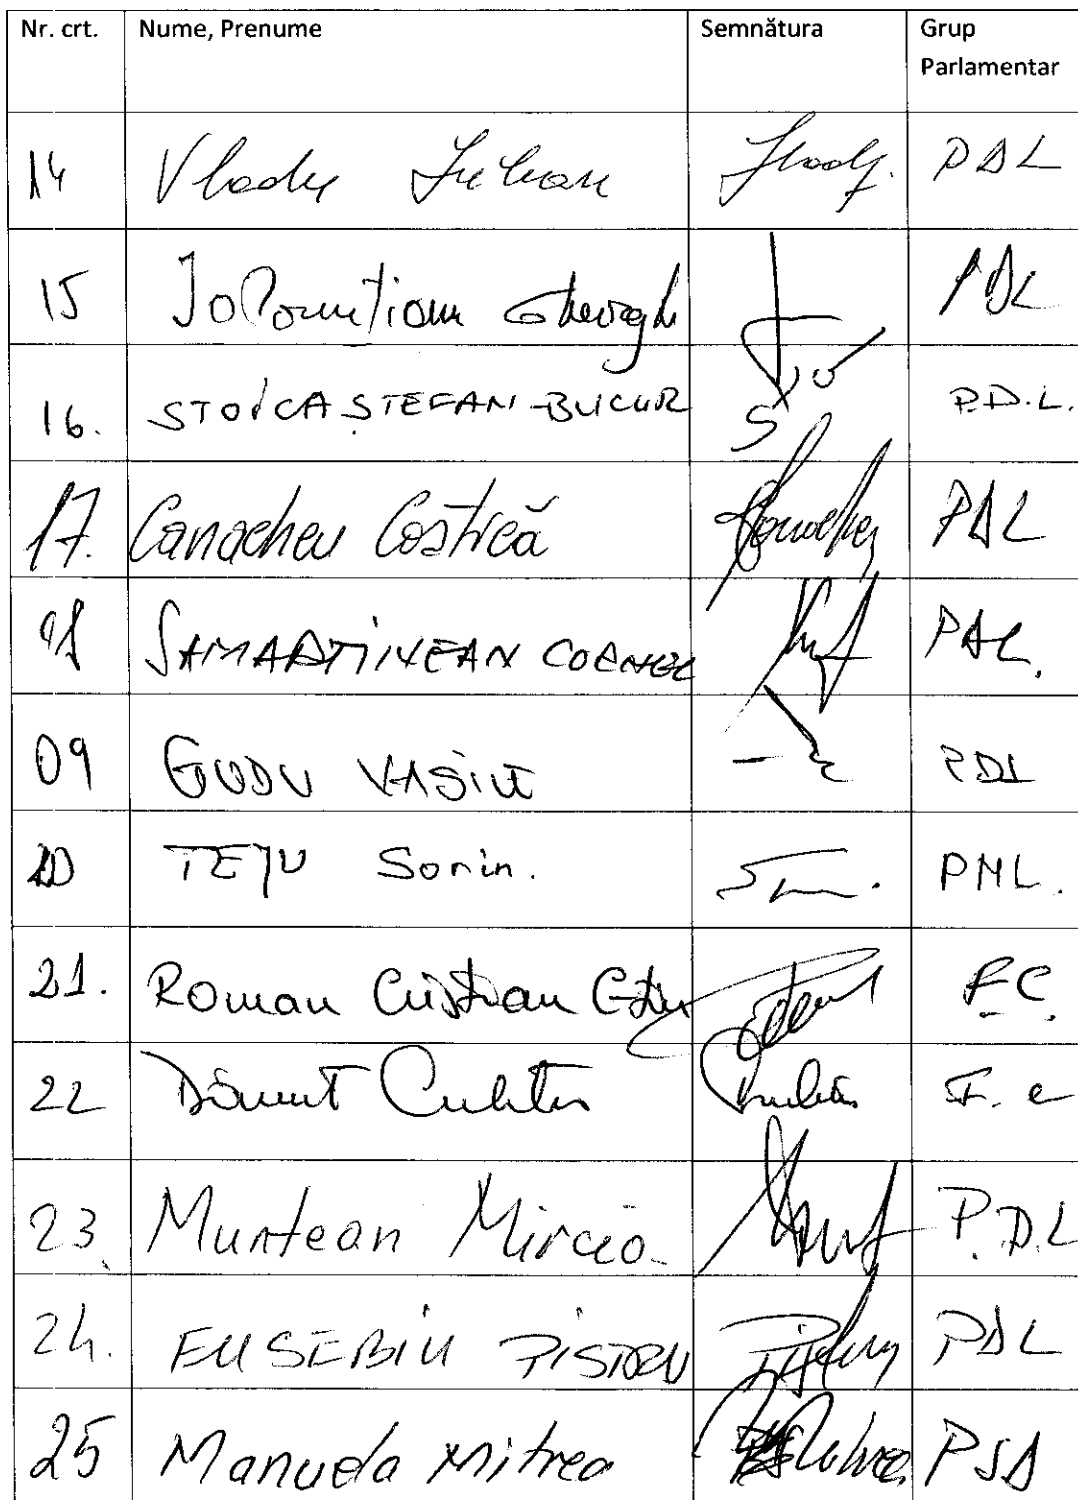 Nr. crt. Nume, Prenume Semnătura Grup Parlamentar
14 Vladu Iulian PDL
15 Ialomițianu Gheorghe PDL
16. STOICA ȘTEFAN-BUCUR P.D.L.
17. Canacheu Costică PDL
18 SAMARTINEAN CORNEL PDL.
09 GUDU VASILE PDL
20 TEȚU Sorin. PNL.
21. Roman Cristian F.C.
22 F. C
23. Muntean Mircea P.D.L
24. EUSEBIU PISTRU PDL
25 Manuela Mitrea PSD